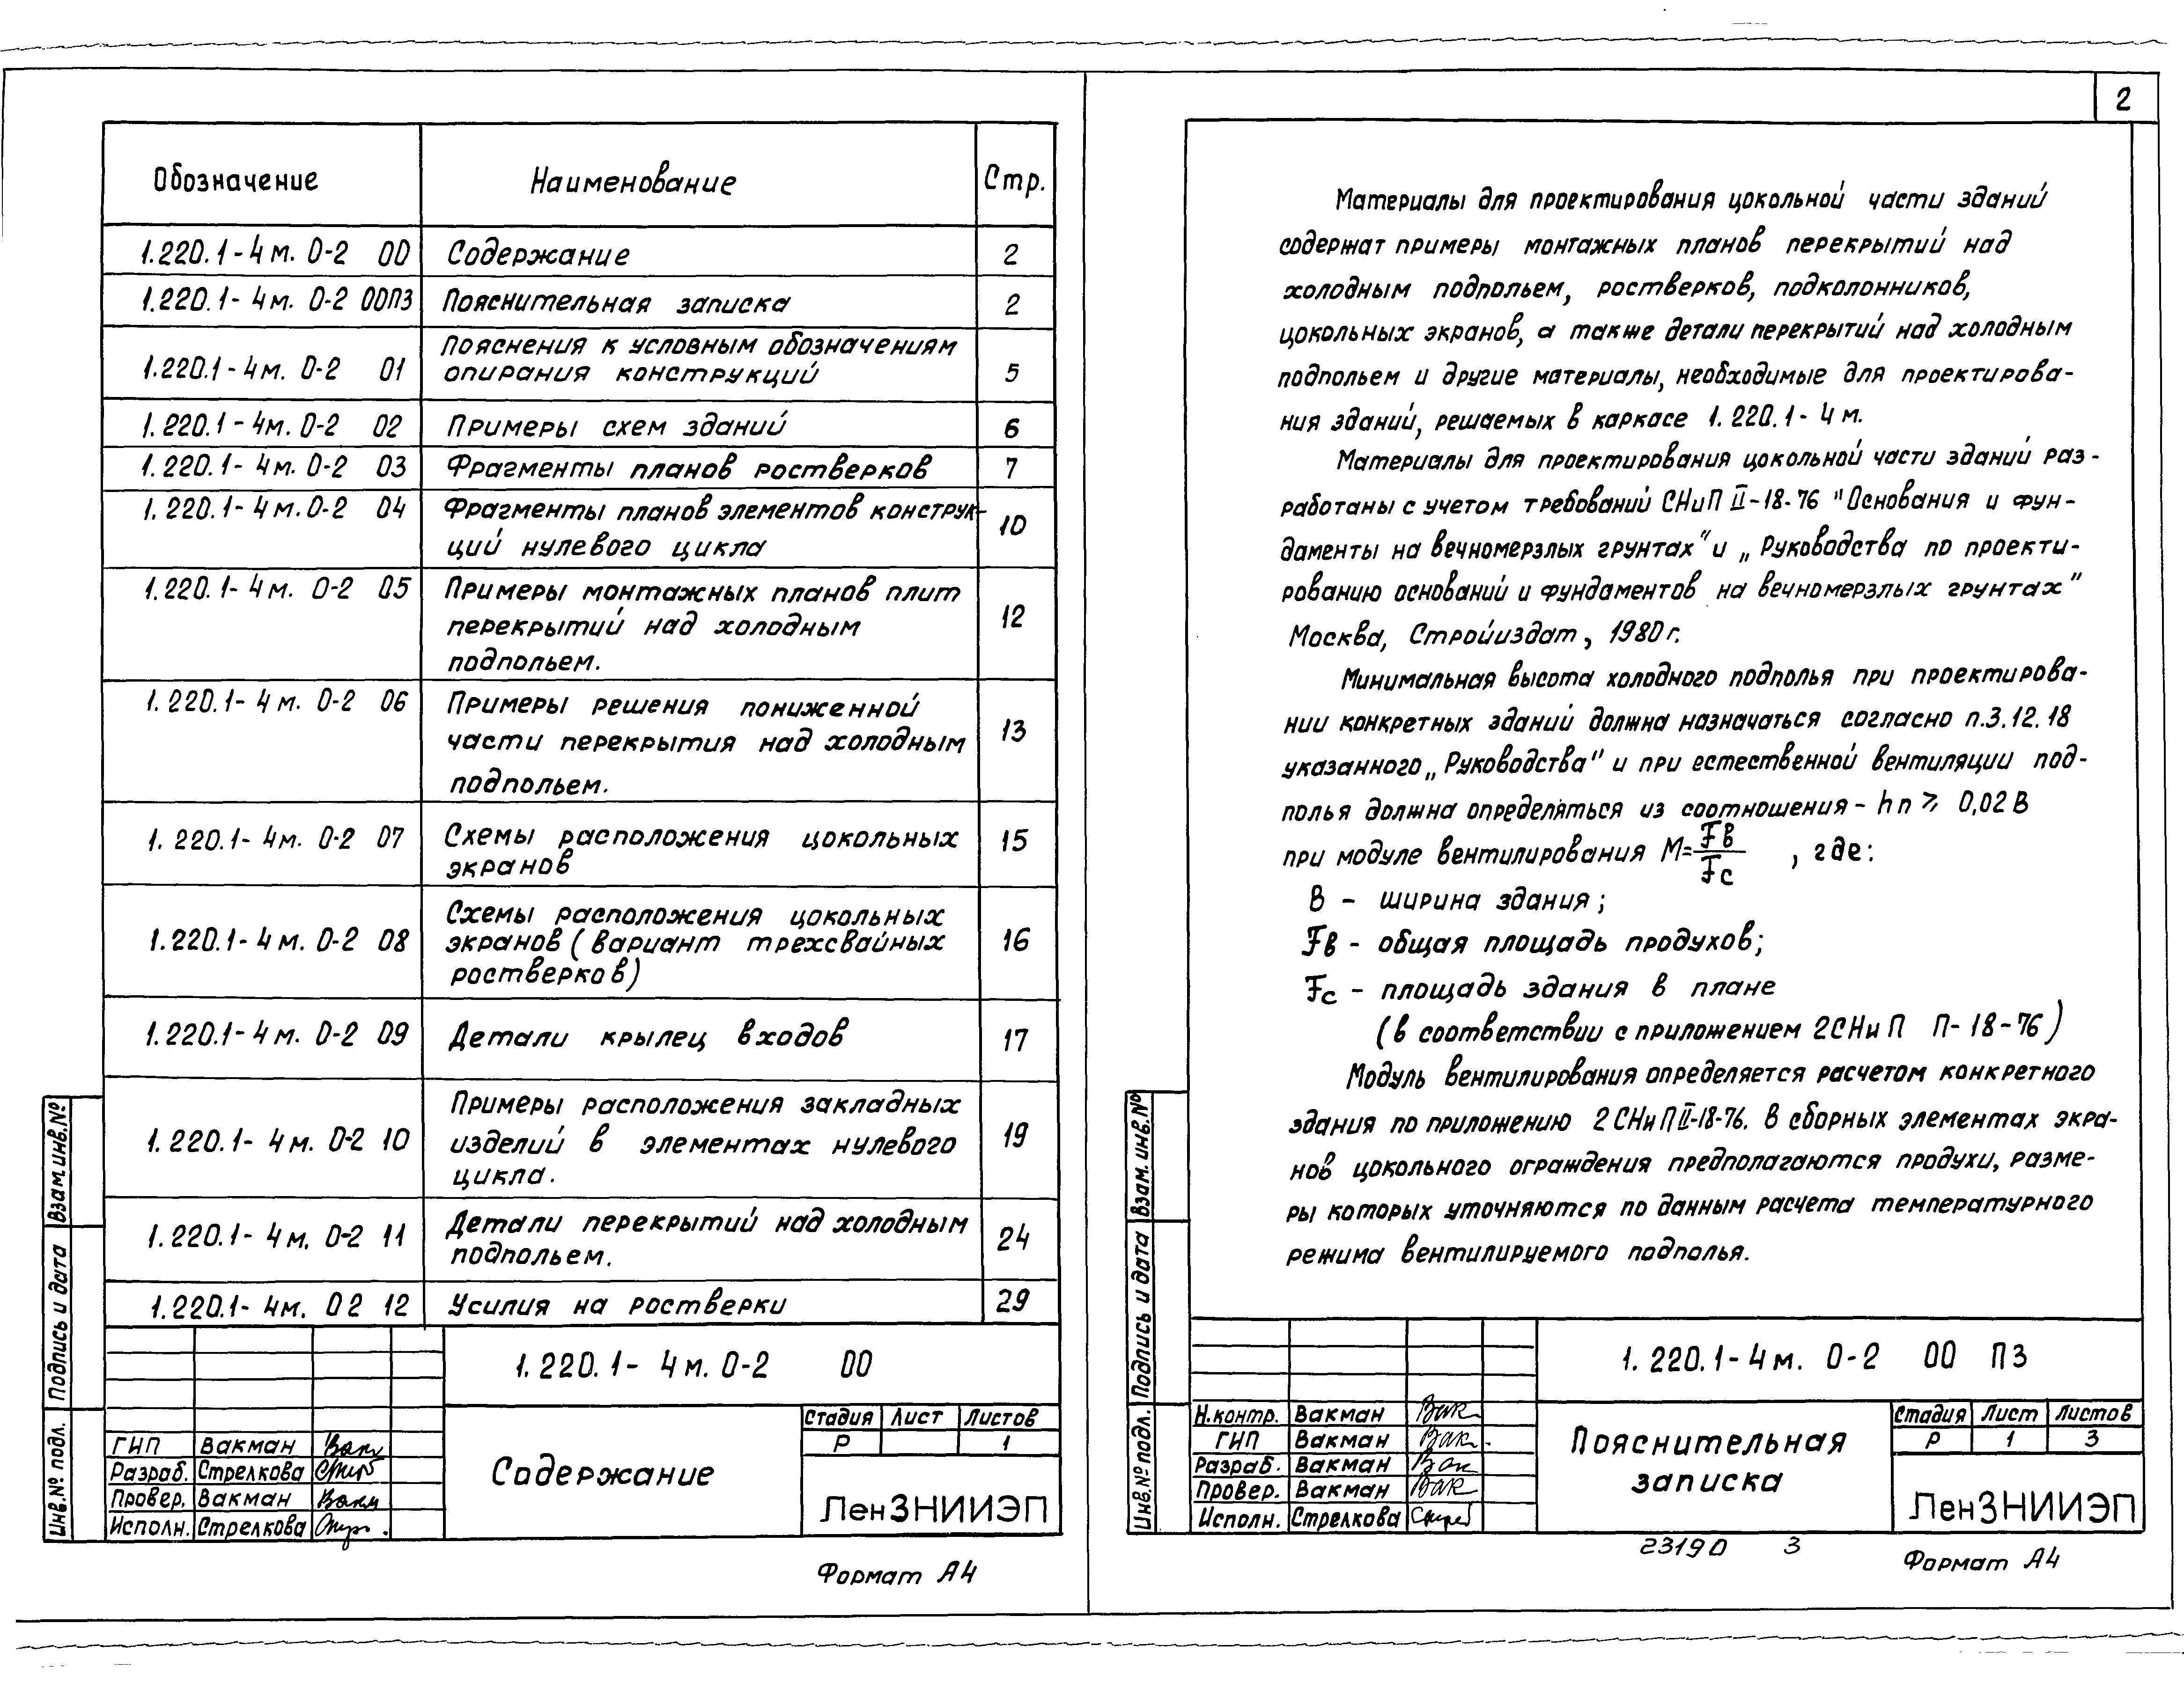 Обозначение Наименование Стр.
1.220.1-4м. 0-2 00 Содержание 2
1.220.1-4м. 0-2 00ПЗ Пояснительная записка 2
Пояснения к условным обозначениям
1.220.1-4м. 0-2 01 опирания конструкций 5
1.220.1-4м. 0-2 02 Примеры схем зданий 6
1.220.1-4м. 0-2 03 Фрагменты планов ростверков 7
1.220.1-4м. 0-2 04 Фрагменты планов элементов конструк- 10
ций нулевого цикла
1.220.1-4м. 0-2 05 Примеры монтажных планов плит
перекрытий над холодным 12
подпольем.
1.220.1-4м. 0-2 06 Примеры решения пониженной
части перекрытия над холодным 13
подпольем.
1.220.1-4м. 0-2 07 Схемы расположения цокольных 15
экранов
Схемы расположения цокольных
1.220.1-4м. 0-2 08 экранов (вариант трехсвайных 16
ростверков)
1.220.1-4м. 0-2 09 Детали крылец входов 17
Примеры расположения закладных
1.220.1-4м. 0-2 10 изделий в элементах нулевого 19
цикла.
1.220.1-4м. 0-2 11 Детали перекрытий над холодным 24
подпольем.
1.220.1-4м. 02 12 Усилия на ростверки 29
1.220.1-4м. 0-2 00
Стадия Лист Листов
Р 1
Содержание
ЛенЗНИИЭП
ГИП Вакман
Разраб. Стрелкова
Провер. Вакман
Исполн. Стрелкова
Взам.инв.№
Подпись и дата
Инв.№ подл.
Формат А4
2
Материалы для проектирования цокольной части зданий
содержат примеры монтажных планов перекрытий над
холодным подпольем, ростверков, подколонников,
цокольных экранов, а также детали перекрытий над холодным
подпольем и другие материалы, необходимые для проектирова-
ния зданий, решаемых в каркасе 1.220.1-4м.
Материалы для проектирования цокольной части зданий раз-
работаны с учетом требований СНиП II-18-76 "Основания и фун-
даменты на вечномерзлых грунтах" и „Руководства по проекти-
рованию оснований и фундаментов на вечномерзлых грунтах"
Москва, Стройиздат, 1980г.
Минимальная высота холодного подполья при проектирова-
нии конкретных зданий должна назначаться согласно п.3.12.18
указанного „Руководства" и при естественной вентиляции под-
полья должна определяться из соотношения - hп ⩾ 0,02 В
при модуле вентилирования М=Fв/Fс , где:
В - ширина здания;
Fв - общая площадь продухов;
Fс - площадь здания в плане
(в соответствии с приложением 2СНиП П-18-76)
Модуль вентилирования определяется расчетом конкретного
здания по приложению 2 СНиП II-18-76. В сборных элементах экра-
нов цокольного ограждения предполагаются продухи, разме-
ры которых уточняются по данным расчета температурного
режима вентилируемого подполья.
1.220.1-4м. 0-2 00 ПЗ
Стадия Лист Листов
Р 1 3
Пояснительная
записка
ЛенЗНИИЭП
Н.контр. Вакман
ГИП Вакман
Разраб. Вакман
Провер. Вакман
Исполн. Стрелкова
Взам.инв.№
Подпись и дата
Инв.№ подл.
23190 3
Формат А4